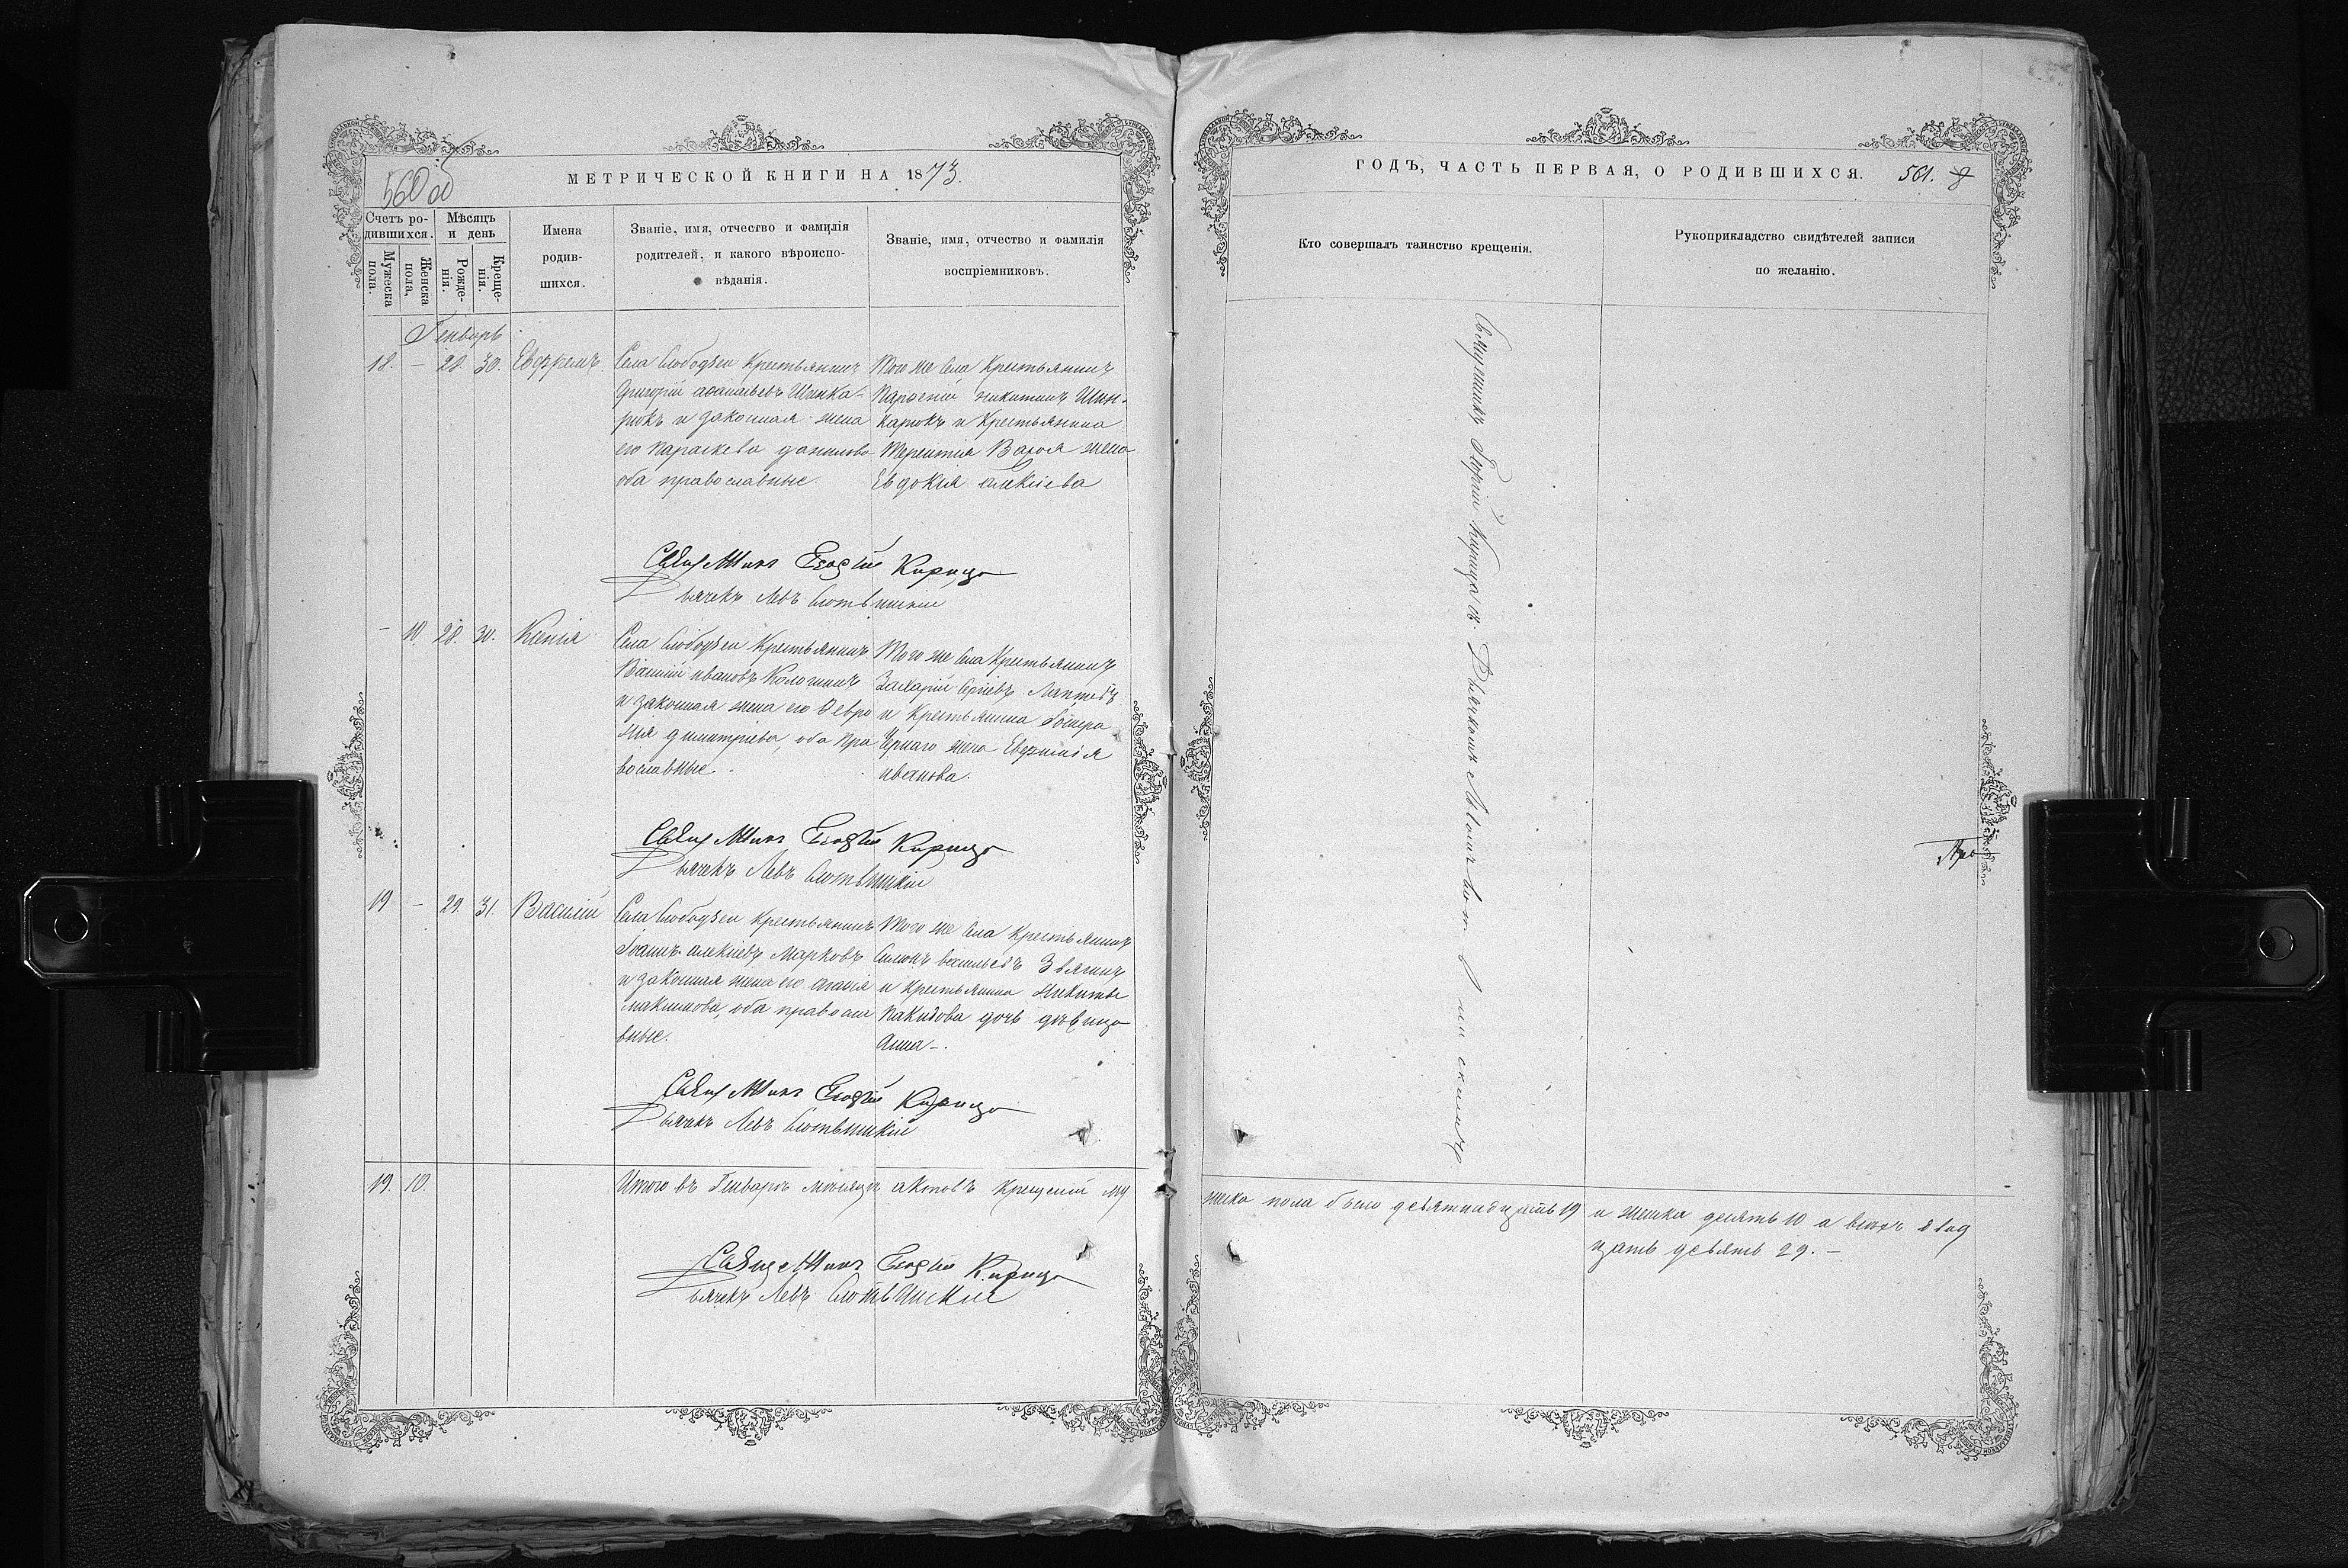 560 об
МЕТРИЧЕСКОЙ КНИГИ НА 1873.
Счетъ ро-
дившихся.
Мужеска пола.
Женска пола.
Мѣсяцъ
и день
Рожде-
нія.
Креще-
нія.
Имена
родив-
шихся.
Званіе, имя, отчество и фамилія
родителей, и какого вѣроиспо-
вѣданія.
Званіе, имя, отчество и фамилія
воспріемниковъ.
Генварь
18. – 28. 30. Ефремъ
Села Слободзеи Крестьянинъ
Григорій Шинка-
рюкъ и законная жена
его Параскева данилова
оба православные.
Того же Села Крестьянинъ
Парѳеній никитинъ Шин-
карюкъ и Крестьянина
Терентія жена
Евдокія алексіева
Священникъ Георгій Кирица
Дьячекъ Левъ
– 10. 28. 30. Ксенія
Села Слободзеи Крестьянинъ
Василій ивановъ
и законная жена его Февро
нія димитріева, оба пра
вославные.
Того же Села Крестьянинъ
Захарій Сергіевъ Лаптевъ
и Крестьянина
Чернаго жена Евфимія
иванова.
Священникъ Георгій Кирица
Дьячекъ Левъ
19 – 29. 31. Василій
Села Слободзеи Крестьянинъ
Іоаннъ алексіевъ Марковъ
и законная жена его агафія
максимова, оба правосла
вные.
Того же Села Крестьянинъ
васильевъ
и Крестьянина Никиты
дочь дѣвица
Анна –.
Священникъ Георгій Кирица
Дьячекъ Левъ
19. 10.
Итого въ Генварѣ мѣсяцѣ актовъ крещеній му
Священникъ Георгій Кирица
Дьячекъ Левъ
ГОДЪ, ЧАСТЬ ПЕРВАЯ, О РОДИВШИХСЯ.
561.
Кто совершалъ таинство крещенія.
Рукоприкладство свидѣтелей записи
по желанію.
Священникъ Георгій Кирица съ Дьячкомъ
жска пола было девятнадцать 19
и женска десять 10 а всѣхъ двад
цать девять 29. –